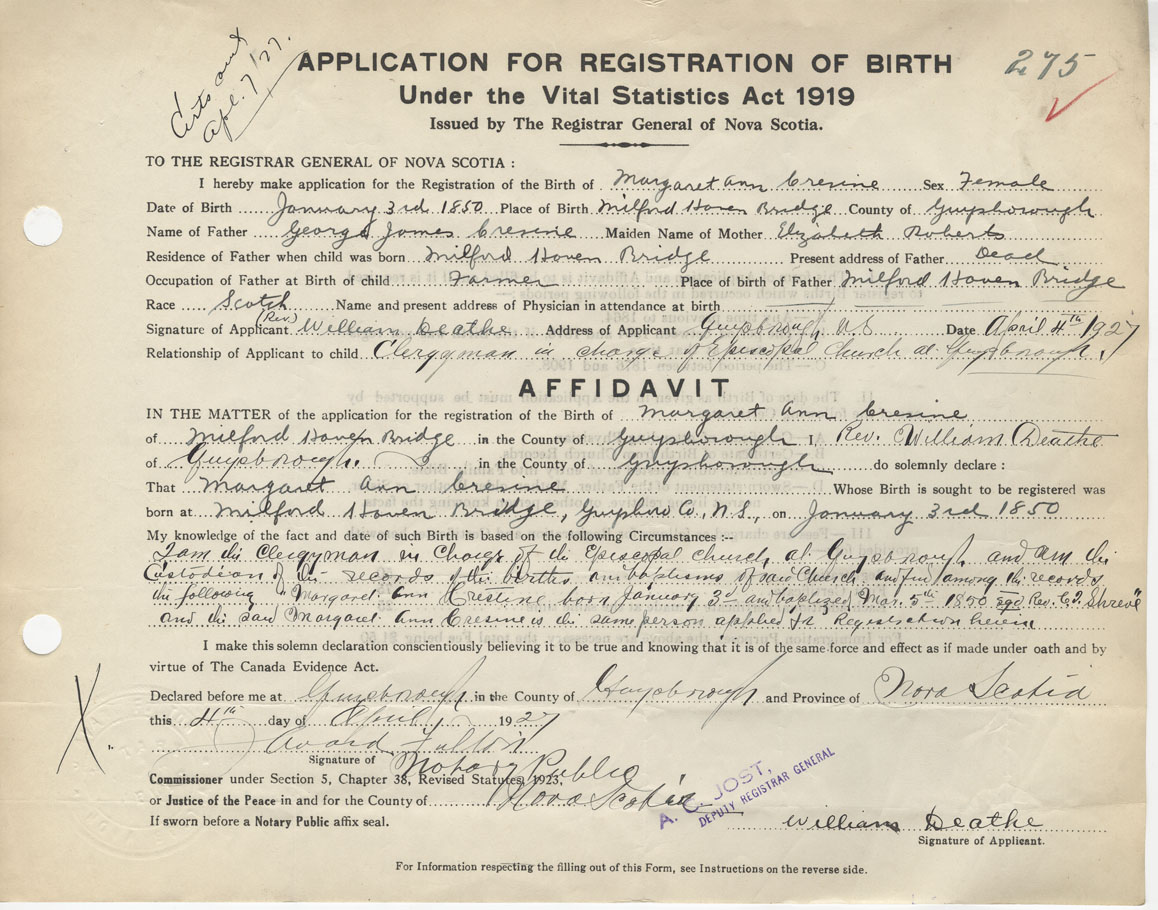 Certs out
Apl. 7/27.
APPLICATION FOR REGISTRATION OF BIRTH
275
Under the Vital Statistics Act 1919
Issued by The Registrar General of Nova Scotia.
TO THE REGISTRAR GENERAL OF NOVA SCOTIA :
I hereby make application for the Registration of the Birth of Margaret Ann Cresine Sex Female
Date of Birth January 3rd 1850 Place of Birth Milford Haven Bridge County of Guysborough
Name of Father George James Cresine Maiden Name of Mother Elizabeth Roberts
Residence of Father when child was born Milford Haven Bridge Present address of Father Dead
Occupation of Father at Birth of child Farmer Place of birth of Father Milford Haven Bridge
Race Scotch Name and present address of Physician in attendance at birth
Signature of Applicant (Rev) William Deathe Address of Applicant Guysborough N S Date April 4th 1927
Relationship of Applicant to child Clergyman in charge of Episcopal church at Guysborough.
AFFIDAVIT
IN THE MATTER of the application for the registration of the Birth of Margaret Ann Cresine
of Milford Haven Bridge in the County of Guysborough I, Rev. William Deathe
of Guysborough. in the County of Guysborough do solemnly declare :
That Margaret Ann Cresine Whose Birth is sought to be registered was
born at Milford Haven Bridge, Guysboro Co., N.S., on January 3rd 1850
My knowledge of the fact and date of such Birth is based on the following Circumstances :--
I am the Clergyman in Charge of the Episcopal church, at Guysborough and am the
Custodian of the records of the births and baptisms of said Church and find among the records
the following "Margaret Ann Cresine born January 3rd and baptized Mar. 5th 1850 sgd Rev. C. J. Shreve"
and the said Margaret Ann Cresine is the same person applied for Registration herein
I make this solemn declaration conscientiously believing it to be true and knowing that it is of the same force and effect as if made under oath and by
virtue of The Canada Evidence Act.
Declared before me at Guysborough in the County of Guysborough and Province of Nova Scotia
this 4th day of April, 1927
Fulton
Signature of Notary Public
Commissioner under Section 5, Chapter 38, Revised Statutes, 1923,
or Justice of the Peace in and for the County of Nova Scotia
A. C. JOST,
DEPUTY REGISTRAR GENERAL
If sworn before a Notary Public affix seal.
William Deathe
Signature of Applicant.
For Information respecting the filling out of this Form, see Instructions on the reverse side.